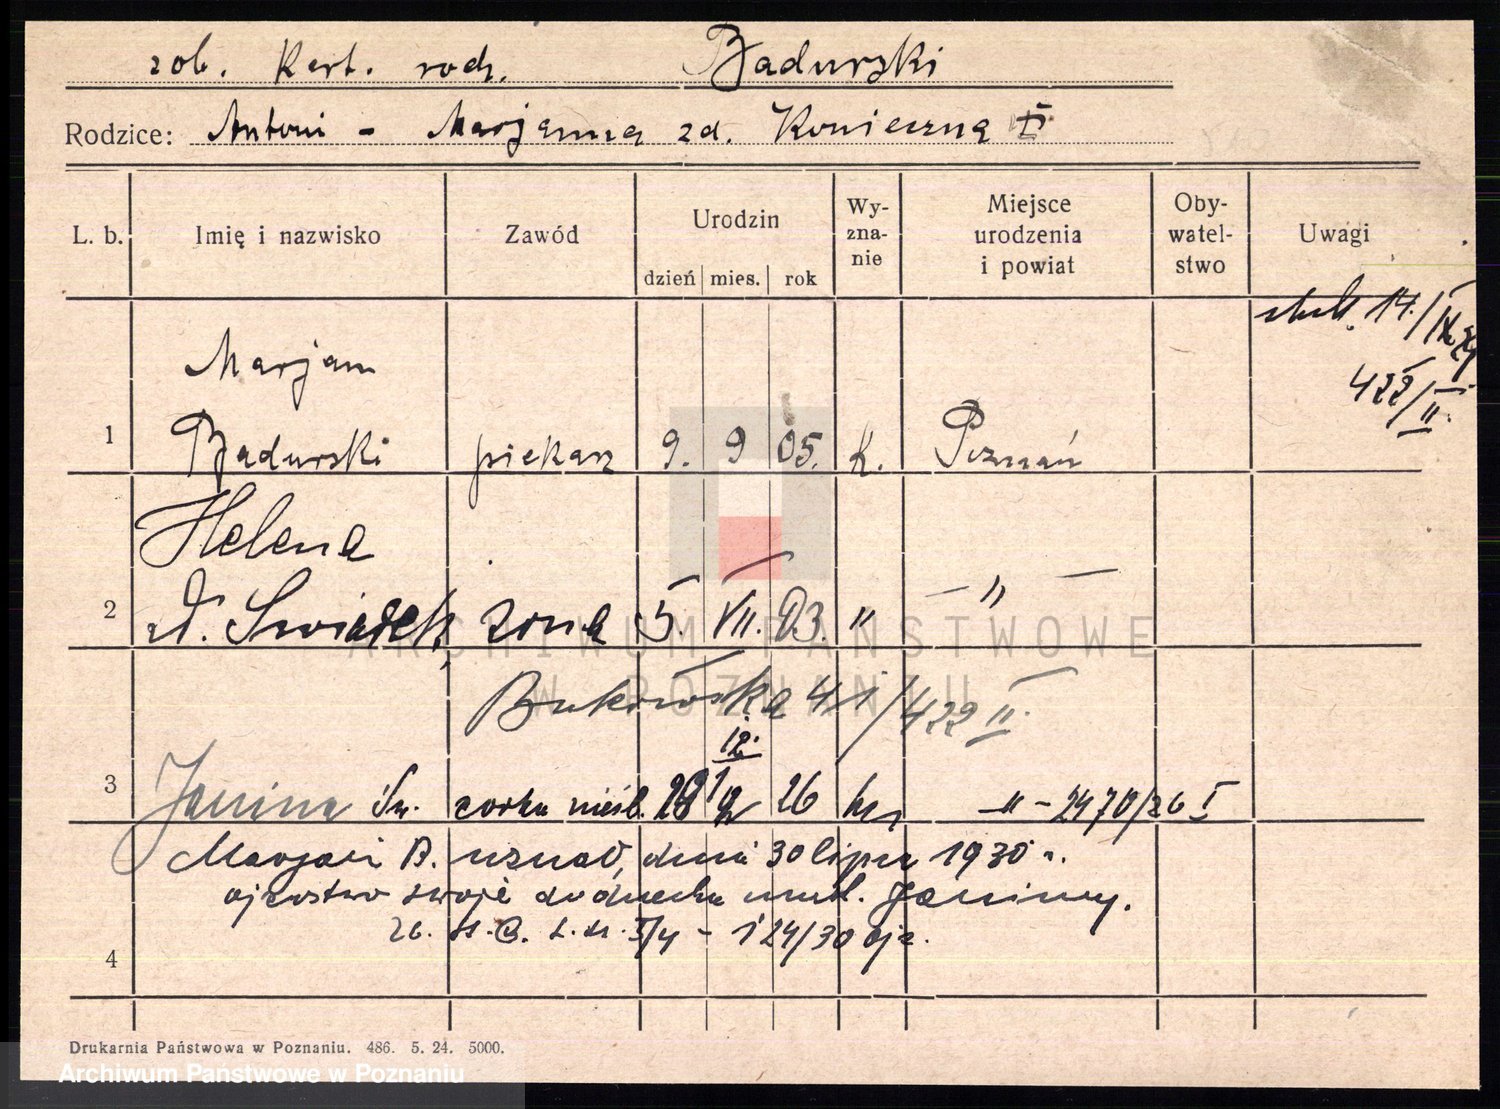 zob. Kart. rodz. Badurski
Rodzice: Antoni - Marjanna zd. Konieczna
L. b. Imię i nazwisko Zawód Urodzin dzień mies. rok Wy-zna-nie Miejsce urodzenia i powiat Oby-watel-stwo Uwagi
14./IX 29
422/II.
Marjan
1 Badurski piekarz 9. 9 05. k. Poznań
Helena
2 zd. Swiątek żona 5. VII. 03. " — " —
Bukowska 41/422 II.
12.
3 Janina Św. córka nieśl. 26 " - 2470/26 I
Marjan B. uznał dnia 30 lipca 1930 r.
ojcostwo swoje do dziecka nieśl. Janiny.
124/30 ojc.
4
Drukarnia Państwowa w Poznaniu. 486. 5. 24. 5000.
ARCHIWUM PAŃSTWOWE
W POZNANIU
Archiwum Państwowe w Poznaniu